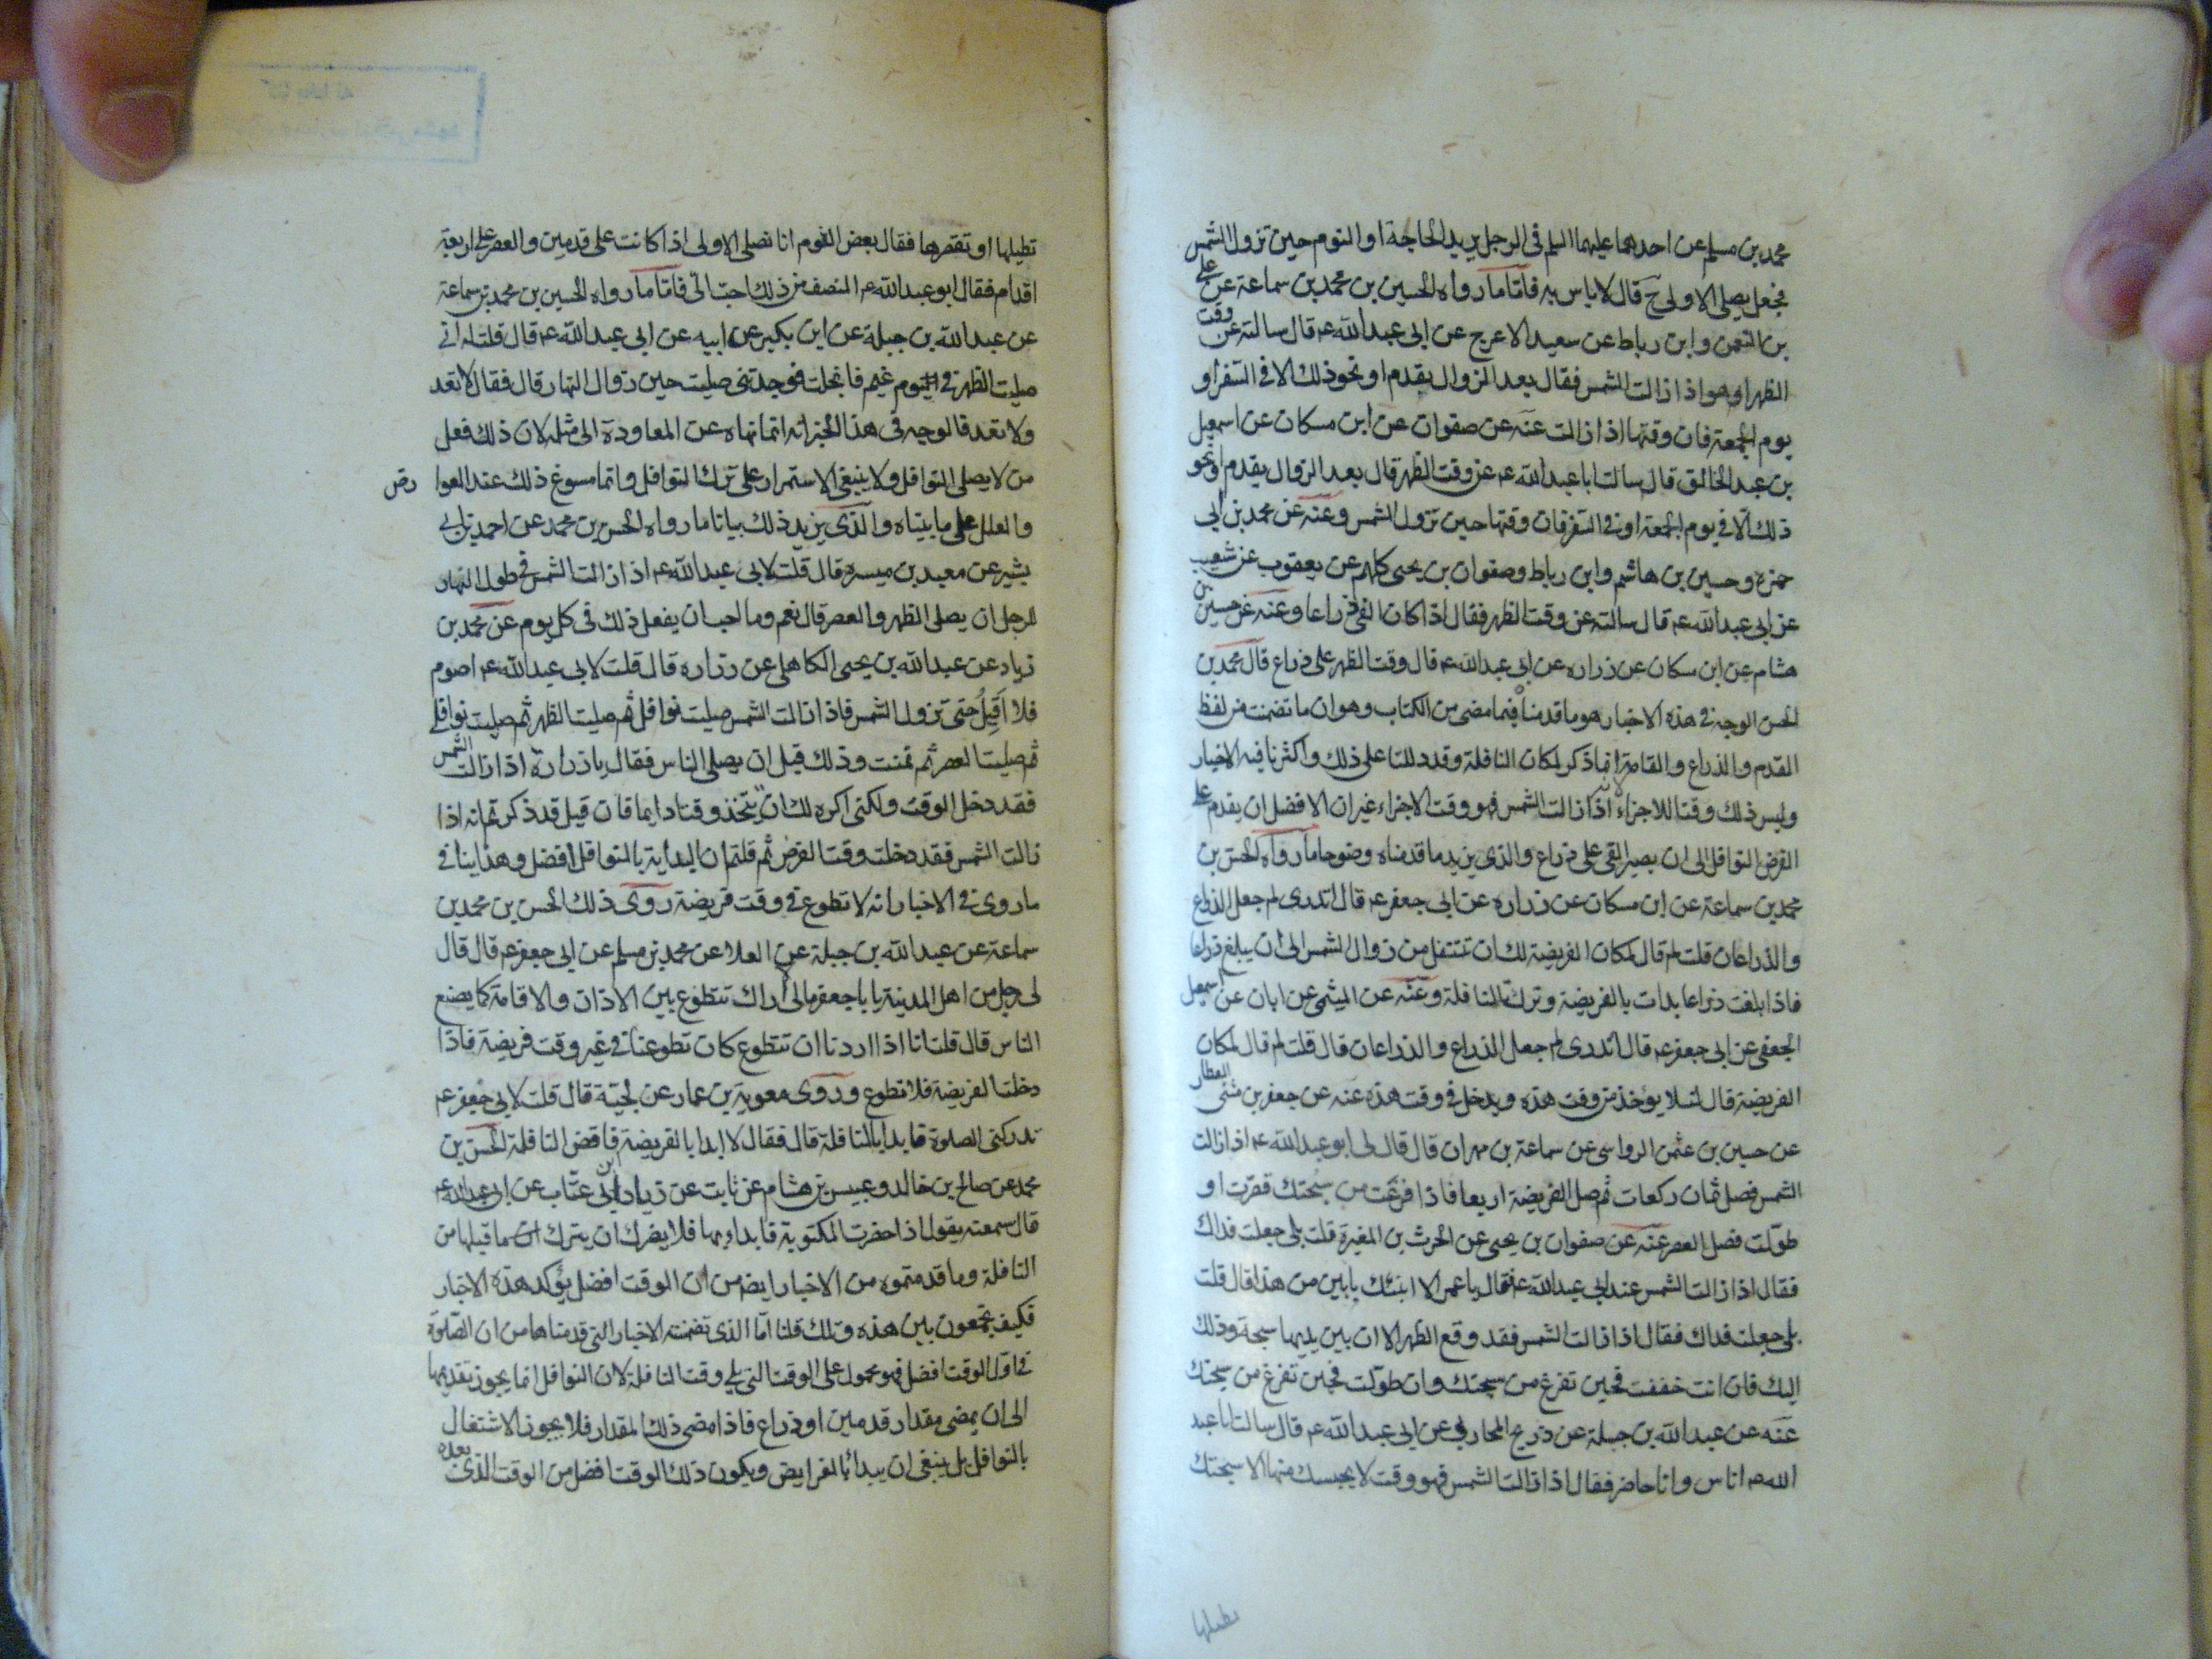 محمد بن مسلم عن احدهما عليهما السلم فى الرجل يريد الحاجة او النوم حين تزول الشمس
فجعل يصلى الاولى ح قال لا باس به فاما ما رواه الحسين بن محمد بن سماعة عن على
بن النعمن وابن رباط عن سعيد الاعرج عن ابى عبد الله ع قال سالته عن وقت
الظهر اهو اذا زالت الشمس فقال بعد الزوال بقدم او نحو ذلك الا فى السفر او
يوم الجمعة فان وقتها اذا زالت عنه عن صفوان عن ابن مسكان عن اسمعيل
بن عبد الخالق قال سالت ابا عبد الله ع عن وقت الظهر قال بعد الزوال بقدم او نحو
ذلك الا فى يوم الجمعة او فى السفر فان وقتها حين تزول الشمس وعنه عن محمد بن ابى
حمزة وحسين بن هاشم وابن رباط وصفوان بن يحيى كلهم عن يعقوب عن شعيب
عن ابى عبد الله ع قال سالته عن وقت الظهر فقال اذا كان الفى ذراعا وعنه عن حسين بن
هشام عن ابن مسكان عن زراره عن ابى عبد الله ع قال وقت الظهر على ذراع قال محمد بن
الحسن الوجه فى هذه الاخبار هو ما قدمناه فيما مضى من الكتاب وهو ان ما تضمنت من لفظ
القدم والذراع والقامة انما ذكر لمكان النافلة وقد دللنا على ذلك واكثرنا فيه الاخبار
وليس ذلك وقتا للاجزاء لانه اذا زالت الشمس فهو وقت الاجزاء غير ان الافضل ان يقدم على
الفرض النوافل الى ان يصير الفى على ذراع والذى يزيد ما قدمناه وضوحا ما رواه الحسن بن
محمد بن سماعة عن ابن مسكان عن زراره عن ابى جعفر ع قال اتدرى لم جعل الذراع
والذراعان قلت لم قال لمكان الفريضة لك ان تتنفل من زوال الشمس الى ان يبلغ ذراعا
فاذا بلغت ذراعا بدات بالفريضة وتركت النافلة وعنه عن الميثمى عن ابان عن اسمعيل
الجعفى عن ابى جعفر ع قال اتدرى لم جعل الذراع والذراعان قال قلت لم قال لمكان
الفريضة قال لئلا يوخذ من وقت هذه ويدخل فى وقت هذه عنه عن جعفر بن مثنى العطار
عن حسين بن عثمن الرواسى عن سماعة بن مهران قال قال لى ابو عبد الله ع اذا زالت
الشمس فصل ثمان ركعات ثم صل الفريضة اربعا فاذا فرغت من سبحتك قصرت او
طولت فصل العصر عنه عن صفوان بن يحيى عن الحرث بن المغيرة قلت بلى جعلت فداك
فقال اذا زالت الشمس عند ابى عبد الله ع فقال يا عمر الا انبئك بابين من هذا قال قلت
بلى جعلت فداك فقال اذا زالت الشمس فقد وقع الظهر الا ان بين يديها سبحة وذلك
اليك فان انت خففت فحين تفرغ من سبحتك وان طولت فحين تفرغ من سبحتك
عنه عن عبد الله بن جبلة عن ذريح المحاربى عن ابى عبد الله ع قال سالت ابا عبد
الله ع اناس وانا حاضر فقال اذا زالت الشمس فهو وقت لا يحبسك منها الا سبحتك
تطيلها
تطيلها او تقصرها فقال بعض القوم انا نصلى الاولى اذا كانت على قدمين والعصر على اربعة
اقدام فقال ابو عبد الله ع النصف من ذلك احب الى فاما ما رواه الحسين بن محمد بن سماعة
عن عبد الله بن جبلة عن ابن بكير عن ابيه عن ابى عبد الله ع قال قلت له انى
صليت الظهر فى يوم غيم فانجلت فوجدتنى صليت حين زوال النهار قال فقال لا تعد
ولا تعد فالوجه فى هذا الخبر انه انما نهاه عن المعاودة الى مثله لان ذلك فعل
من لا يصلى النوافل ولا ينبغى الاستمرار على ترك النوافل وانما مسوغ ذلك عند العوا رض
والعلل على ما بيناه والذى يزيد ذلك بيانا ما رواه الحسن بن محمد عن احمد بن ابى
بشير عن معبد بن ميسره قال قلت لابى عبد الله ع اذا زالت الشمس فى طول النهار
للرجل ان يصلى الظهر والعصر قال نعم وما احب ان يفعل ذلك فى كل يوم عن محمد بن
زياد عن عبد الله بن يحيى الكاهلى عن زراره قال قلت لابى عبد الله ع اصوم
فلا اقيل حتى تزول الشمس فاذا زالت الشمس صليت نوافل ثم صليت الظهر ثم صليت نوافلى
ثم صليت العصر ثم نمت وذلك قبل ان يصلى الناس فقال يا زرارة اذا زالت الشمس
فقد دخل الوقت ولكنى اكره لك ان تتخذ وقتا دايما فان قيل قد ذكرتم انه اذا
زالت الشمس فقد دخلت وقت الفرض ثم قلتم ان البداية بالنوافل افضل وهذا ينافى
ما روى فى الاخبار انه لا تطوع فى وقت فريضة روى ذلك الحسن بن محمد بن
سماعة عن عبد الله بن جبلة عن العلا عن محمد بن مسلم عن ابى جعفر ع قال قال
لى رجل من اهل المدينة يا با جعفر مالى لا اراك تتطوع بين الاذان والاقامة كما يصنع
الناس قال قلت انا اذا اردنا ان نتطوع كان تطوعنا فى غير وقت فريضة فاذا
دخلت الفريضة فلا تطوع وروى معوية بن عمار عن نجية قال قلت لابى جعفر ع
تدركنى الصلوة فابدا بالنافلة قال فقال لا ابدا بالفريضة فاقض النافلة الحسن بن
محمد عن صالح بن خالد وعبيس بن هشام عن ثابت عن زياد ابن ابى عتاب عن ابى عبد الله ع
قال سمعته يقول اذا حضرت المكتوبة فابدا بها فلا يضرك ان يترك ما قبلها من
النافلة وما قدمتموه من الاخبار ايضا من ان الوقت افضل يؤكد هذه الاخبار
فكيف تجمعون بين هذه وتلك قلنا اما الذى تضمنته الاخبار التى قدمناها من ان الصلوة
فى اول الوقت افضل فهو محمول على الوقت التى يلى وقت النافلة لان النوافل انما يجوز تقديمها
الى ان يمضى مقدار قدمين او ذراع فاذا مضى ذلك المقدار فلا يجوز الاشتغال
بالنوافل بل ينبغى ان يبدا بالفرايض ويكون ذلك الوقت افضل من الوقت الذى بعده